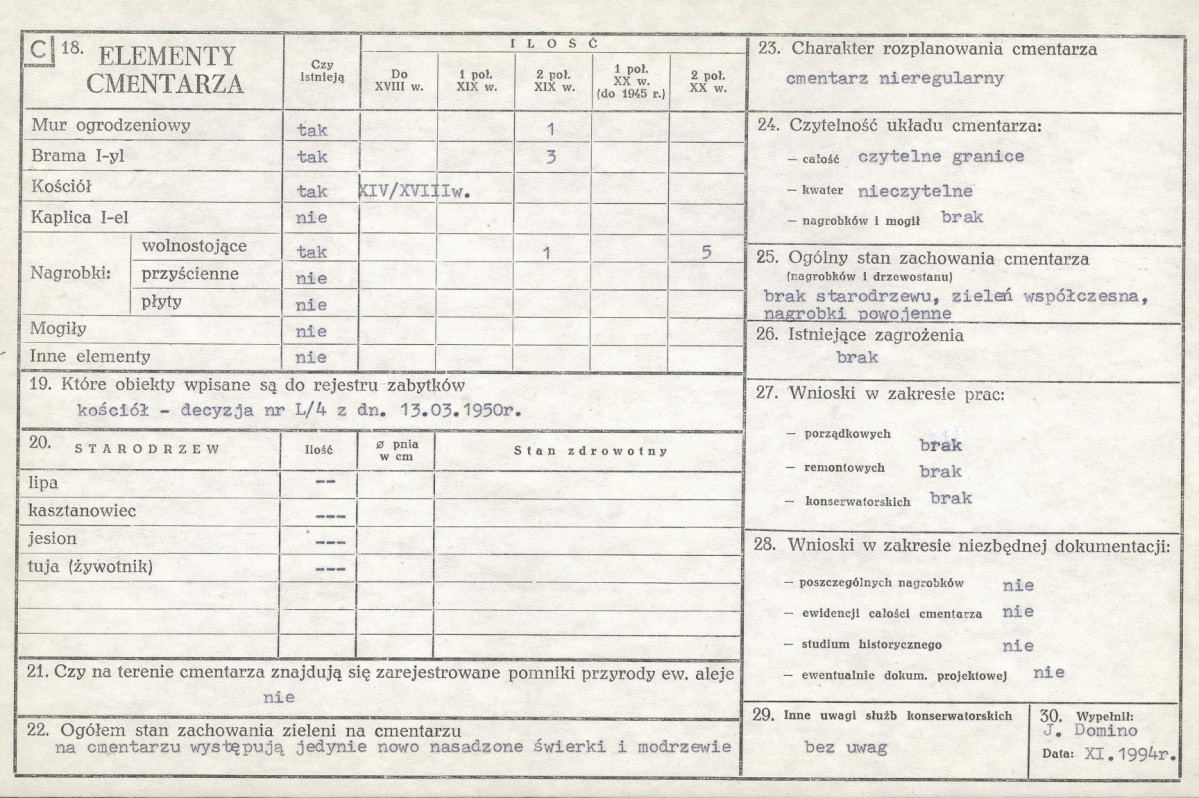 C 18. ELEMENTY CMENTARZA
Czy istnieją
ILOŚĆ
Do XVIII w.
1 poł. XIX w.
2 poł. XIX w.
1 poł. XX w. (do 1945 r.)
2 poł. XX w.
Mur ogrodzeniowy tak 1
Brama I-yl tak 3
Kościół tak XIV/XVIIIw.
Kaplica I-el nie
Nagrobki:
wolnostojące tak 1 5
przyścienne nie
płyty nie
Mogiły nie
Inne elementy nie
19. Które obiekty wpisane są do rejestru zabytków
kościół - decyzja nr L/4 z dn. 13.03.1950r.
20. STARODRZEW Ilość ø pnia w cm Stan zdrowotny
lipa --
kasztanowiec ---
jesion ---
tuja (żywotnik) ---
21. Czy na terenie cmentarza znajdują się zarejestrowane pomniki przyrody ew. aleje
nie
22. Ogółem stan zachowania zieleni na cmentarzu
na cmentarzu występują jedynie nowo nasadzone świerki i modrzewie
23. Charakter rozplanowania cmentarza
cmentarz nieregularny
24. Czytelność układu cmentarza:
— całość czytelne granice
— kwater nieczytelne
— nagrobków i mogił brak
25. Ogólny stan zachowania cmentarza
(nagrobków i drzewostanu)
brak starodrzewu, zieleń współczesna,
nagrobki powojenne
26. Istniejące zagrożenia
brak
27. Wnioski w zakresie prac:
— porządkowych brak
— remontowych brak
— konserwatorskich brak
28. Wnioski w zakresie niezbędnej dokumentacji:
— poszczególnych nagrobków nie
— ewidencji całości cmentarza nie
— studium historycznego nie
— ewentualnie dokum. projektowej nie
29. Inne uwagi służb konserwatorskich
bez uwag
30. Wypełnił:
J. Domino
Data: XI.1994r.